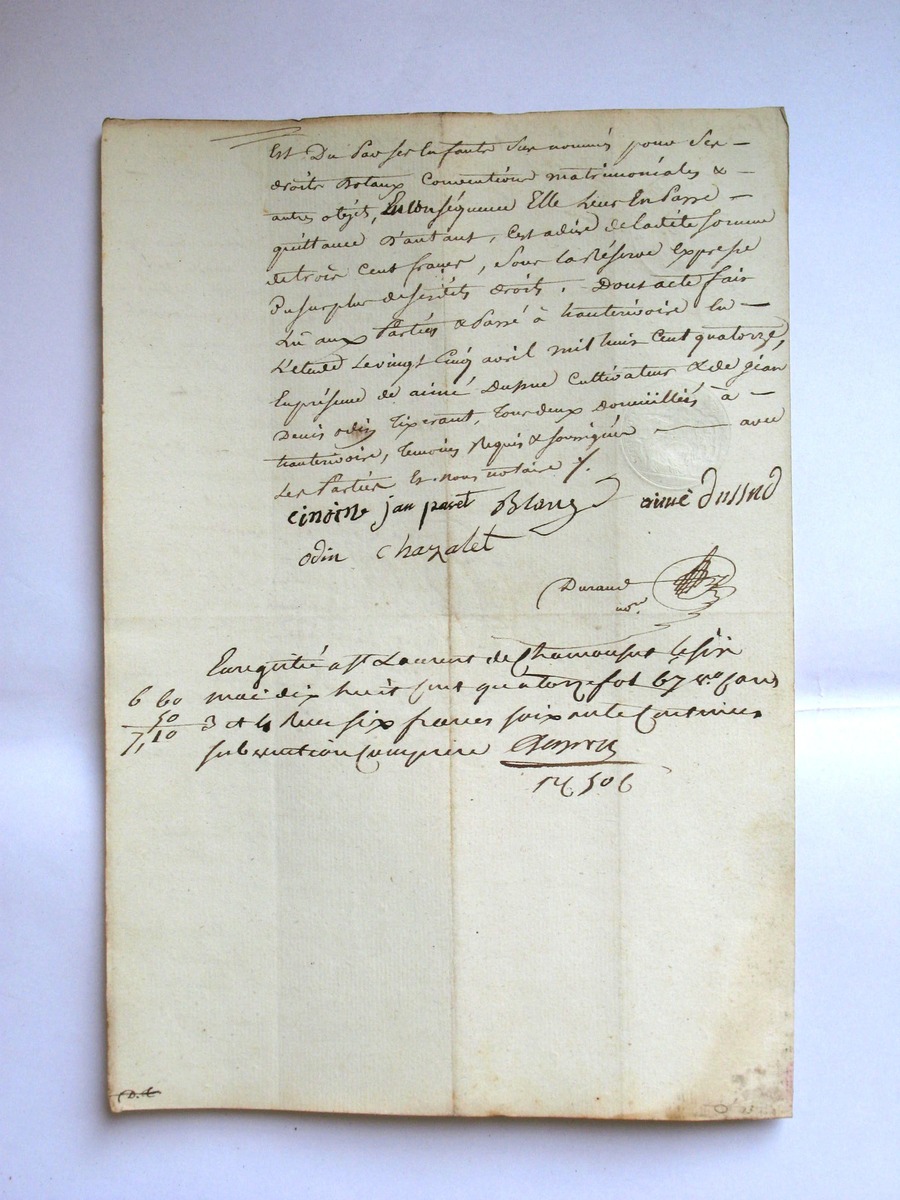 Est Du par ses Enfants Sus nommés pour Ses —
droits Dotaux Conventions matrimoniales & —
autres objéts, En Conséquence Elle Leur En Passe —
quittance D'autant, C'est adire de ladite Somme
de trois Cent francs, Sous la Réserve Expresse
Du surplus de sesdits droits. Dont acte fait
Lu aux Parties & Passé à hauterivoire En —
L'étude Le vingt Cinq avril mil huit Cent quatorze,
En présence de aimé Cultivateur & de jéan
Denis odin Tixerant, Tous deux domiciliés à —
hauterivoire, Temoins Requis & soussignés — avec
Les Parties Et nous notaire ./.
jan pavet Blanc aimé dussud
odin Chazalet
Durand
nore
Enregistré a St Laurent de Chamousset le six
mai dix huit cent quatorze fol 67 vo Cases
3 et 4 Reçu six francs soixante Centimes
subvention Comprise
6 60
50
7,10
D. d.